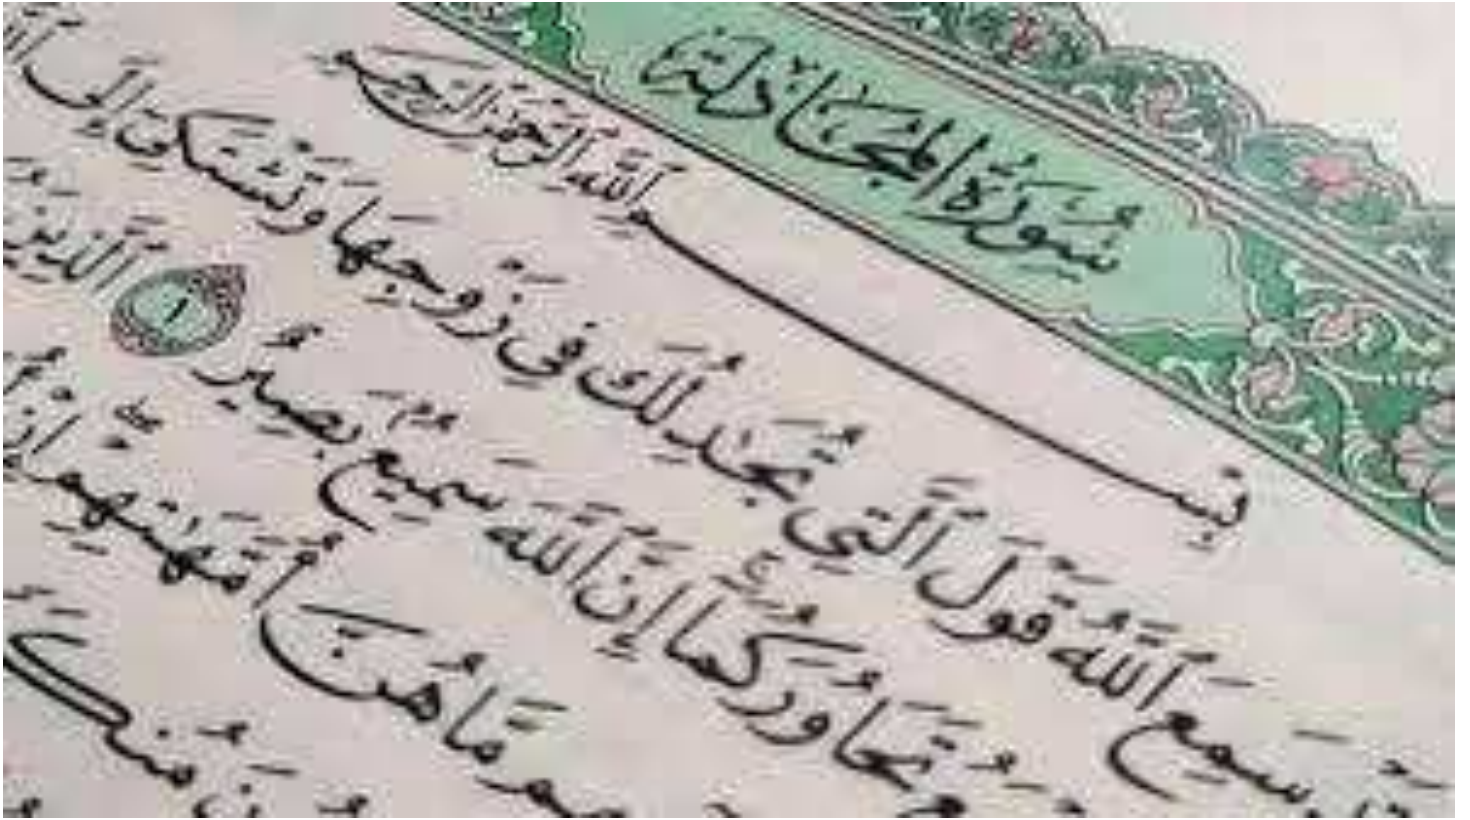 سُورَةُ المُجَادلَة
بِسْمِ ٱللَّهِ ٱلرَّحْمَٰنِ ٱلرَّحِيمِ
قَدْ سَمِعَ ٱللَّهُ قَوْلَ ٱلَّتِي تُجَٰدِلُكَ فِي زَوْجِهَا وَتَشْتَكِيٓ إِلَى
يَسْمَعُ تَحَاوُرَكُمَآ إِنَّ ٱللَّهَ سَمِيعٌۢ بَصِيرٌ ١ ٱلَّذِينَ
مَّا هُنَّ أُمَّهَٰتِهِمْ إِنْ
مُنكَرًا